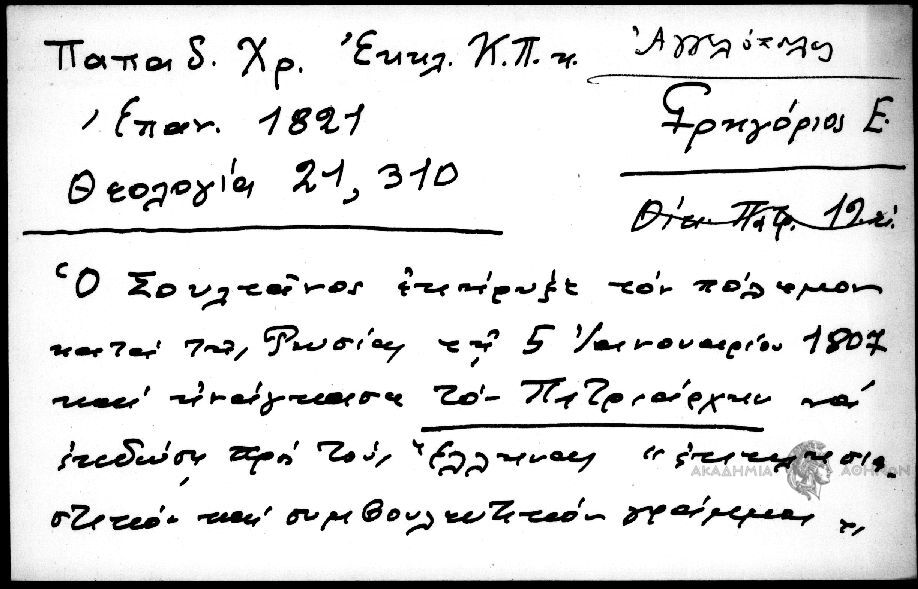 Παπαδ. Χρ. Ἐκκλ. Κ.Π. κ.
Ἐπαν. 1821
Θεολογία 21, 310
Ἀγγελόπουλος
Γρηγόριος Ε.
Οἰκ. Πατρ. 19
Ὁ Σουλτᾶνος ἐκήρυξε τόν πόλεμον
κατά τῆς Ρωσίας τῇ 5 Ἰανουαρίου 1807
καί ἠνάγκασε τόν Πατριάρχην νά
ἐκδώσῃ πρός τούς Ἕλληνας "ἐκκλησια-
στικόν καί συμβουλευτικόν γράμμα"
ΑΚΑΔΗΜΙΑ ΑΘΗΝΩΝ